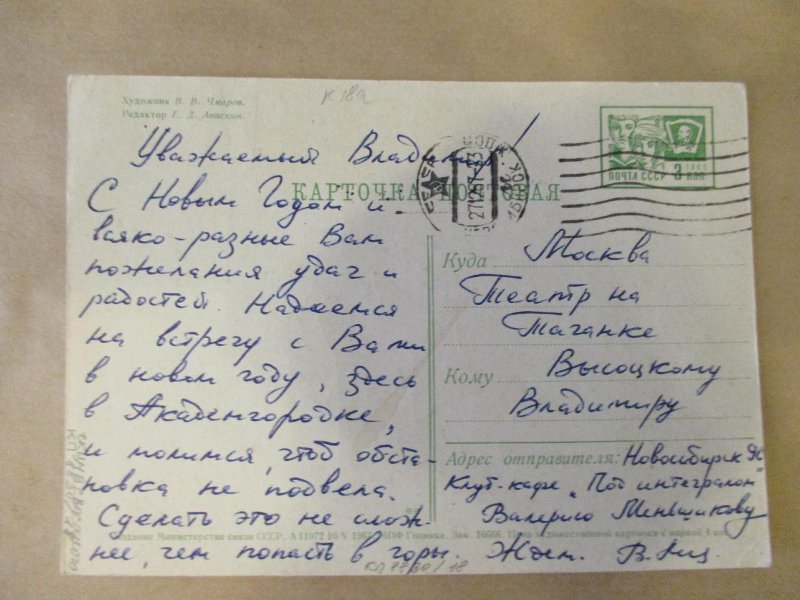 Художник В. В. Чмаров.
Редактор Е. Д. Анискин.
К 189
Уважаемый Владимир!
С Новым Годом и
всяко-разные Вам
пожелания удач и
радостей. Надеемся
на встречу с Вами
в новом году, здесь
в Академгородке,
и молимся, чтоб обста-
новка не подвела.
Сделать это не слож-
нее, чем попасть в горы. Ждем.
КАРТОЧКА ПОЧТОВАЯ
ПОЧТА СССР 3 коп.
Куда Москва
Театр на
Таганке
Кому Высоцкому
Владимиру
Адрес отправителя: Новосибирск 90
Клуб-кафе „Под интегралом"
Валерию Меньшикову
Издание Министерства связи СССР. А 11072 10/V 1967 Гознака. Зак. 16666.